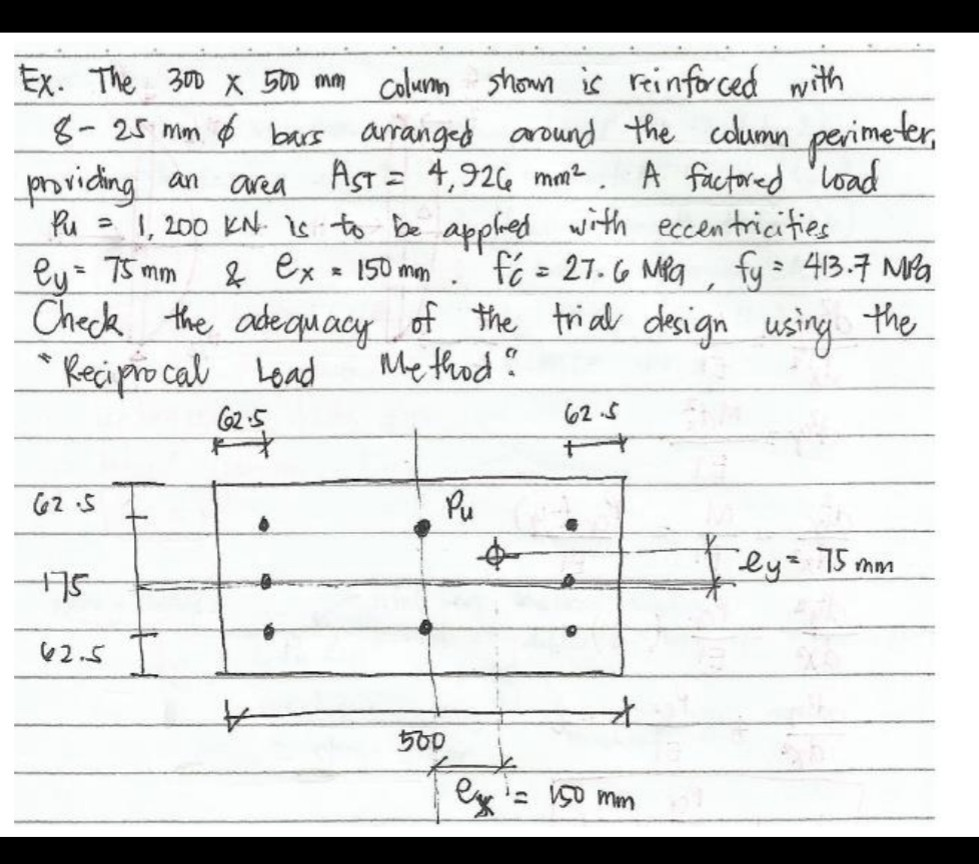 Ex. The 300 x 500 mm column shown is reinforced with
8 - 25 mm ϕ bars arranged around the column perimeter,
providing an area AST = 4,926 mm². A factored load
Pu = 1,200 KN. is to be applied with eccentricities
ey = 75 mm & ex = 150 mm. f'c = 27.6 MPa, fy = 413.7 MPa
Check the adequacy of the trial design using the
"Reciprocal Load Method".
62.5 62.5
62.5
Pu
ey = 75 mm
175
62.5
500
ex = 150 mm